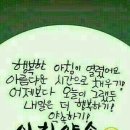 행복한 아침이 열렸어요
아름다운 시간으로 채우기!
어제보다 오늘이 그랬듯
내일은 더 행복하기!
약속하기!